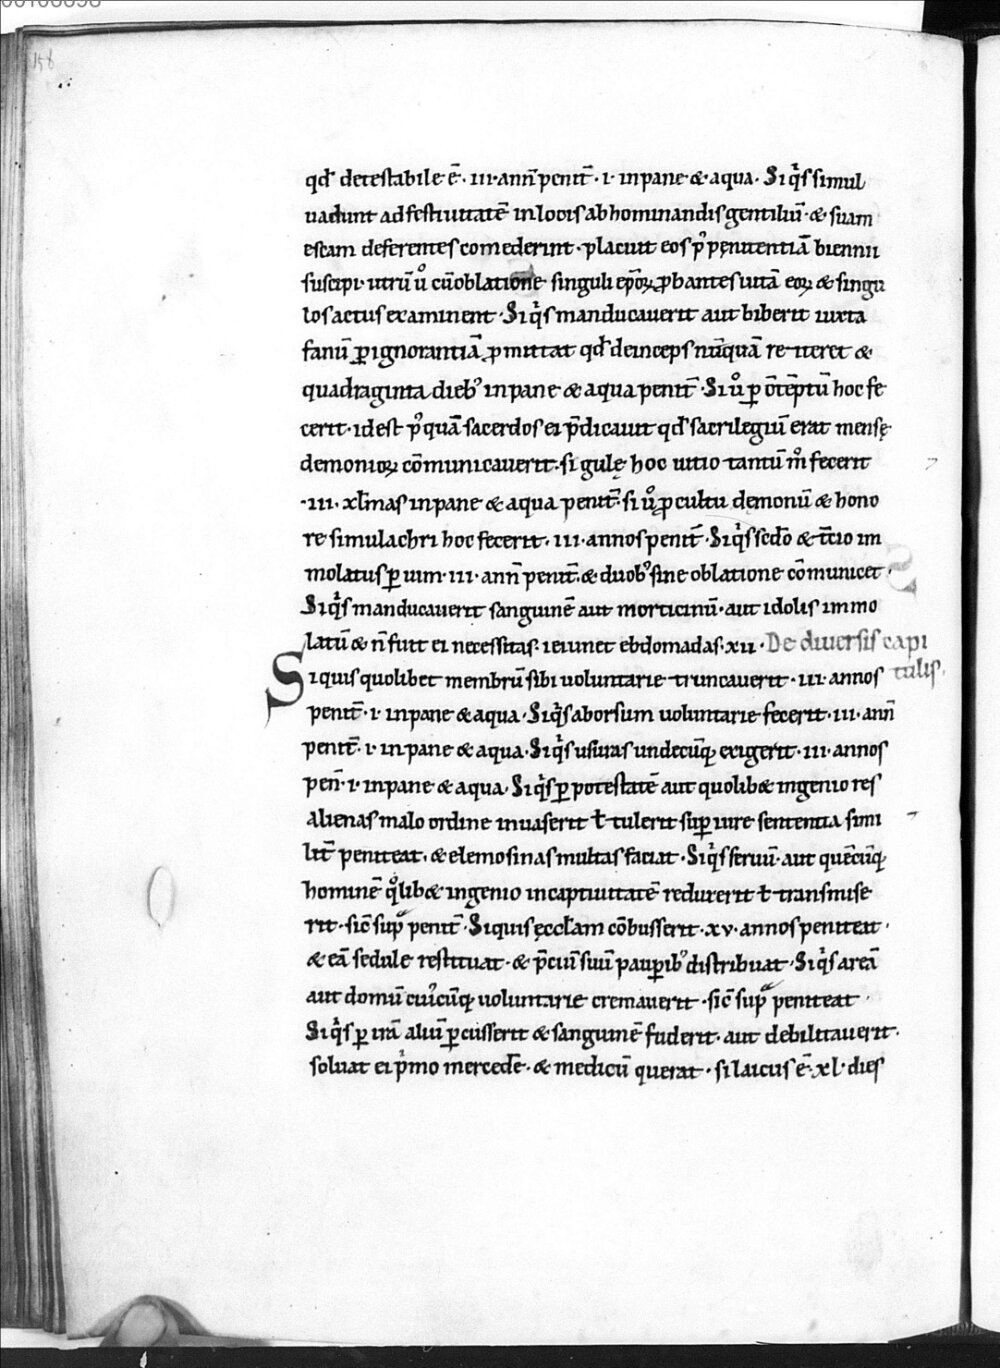 158
qd̄ detestabile ē· iii· ann̄ penit̄· i· in pane & aqua· Siq̇s simul
uadunt ad festiuitatē in locis abhominandis gentiliū· & suam
escam deferentes comederint· placuit eos p᷒ penitentiā biennii
suscipi· utrū u̇ cū oblatione singuli ep̄oꝝ ꝓbantes uitā eoꝝ & singu
los actus examinent· Siq̇s manducauerit aut biberit iuxta
fanū ꝑ ignorantiā ꝓmittat qd̄ deinceps nūquā re iteret &
quadraginta dieb᷒ in pane & aqua penit̄· Si u̇ ꝑ ɔ̄tēptū hoc fe
cerit· id est p᷒quā sacerdos ei p̄dicauit qd̄ sacrilegiū erat mensę
demonioꝝ cōmunicauerit· si gulę hoc uitio tantū m̊ fecerit
·iii· xl̄mas in pane & aqua penit̄· si u̇ ꝓ cultu dęmonū & hono
re simulachri hoc fecerit· iii· annos penit̄· Siq̇s sc̄do & t̄cio im
molatus ꝑ uim· iii· ann̄ penit̄· & duob᷒ sine oblatione cōmunicet·
Siq̇s manducauerit sanguinē aut morticinū· aut idolis immo
latū & n̄ fuit ei necessitas· ieiunet ebdomadas· xii· De diuersis capi
tulis·
Siquis quolibet membrū sibi uoluntarie truncauerit· iii· annos
penit̄· i· in pane & aqua· Siq̇s aborsum uoluntarie fecerit· iii· ann̄
penit̄· i· in pane & aqua· Siq̇s usuras undecūq; exigerit· iii· annos
pen̄· i· in pane & aqua· Siq̇s ꝑ potestatē aut quolib& ingenio res
alienas malo ordine inuaserit ł tulerit suꝑiure sententia simi
lit̄ peniteat· & elemosinas multas faciat· Siq̇s seruū· aut quēcūq;
hominē q̊lib& ingenio in captiuitatē reduxerit ł transmise
rit· sic̄ supᷓ penit̄· Siquis ęccl̄am cōbusserit· xv· annos peniteat·
& eā sedule restituat· & p̄ciū suū pauꝑib᷒ distribuat· Siq̇s areā
aut domū cui᷒cūq; uoluntarie cremauerit· sic̄ supᷓ peniteat·
Siq̇s ꝑ irā aliū ꝑcusserit & sanguinē fuderit· aut debilitauerit·
soluat ei p̍mo mercedē· & medicū querat· si laicus ē· xl· dies